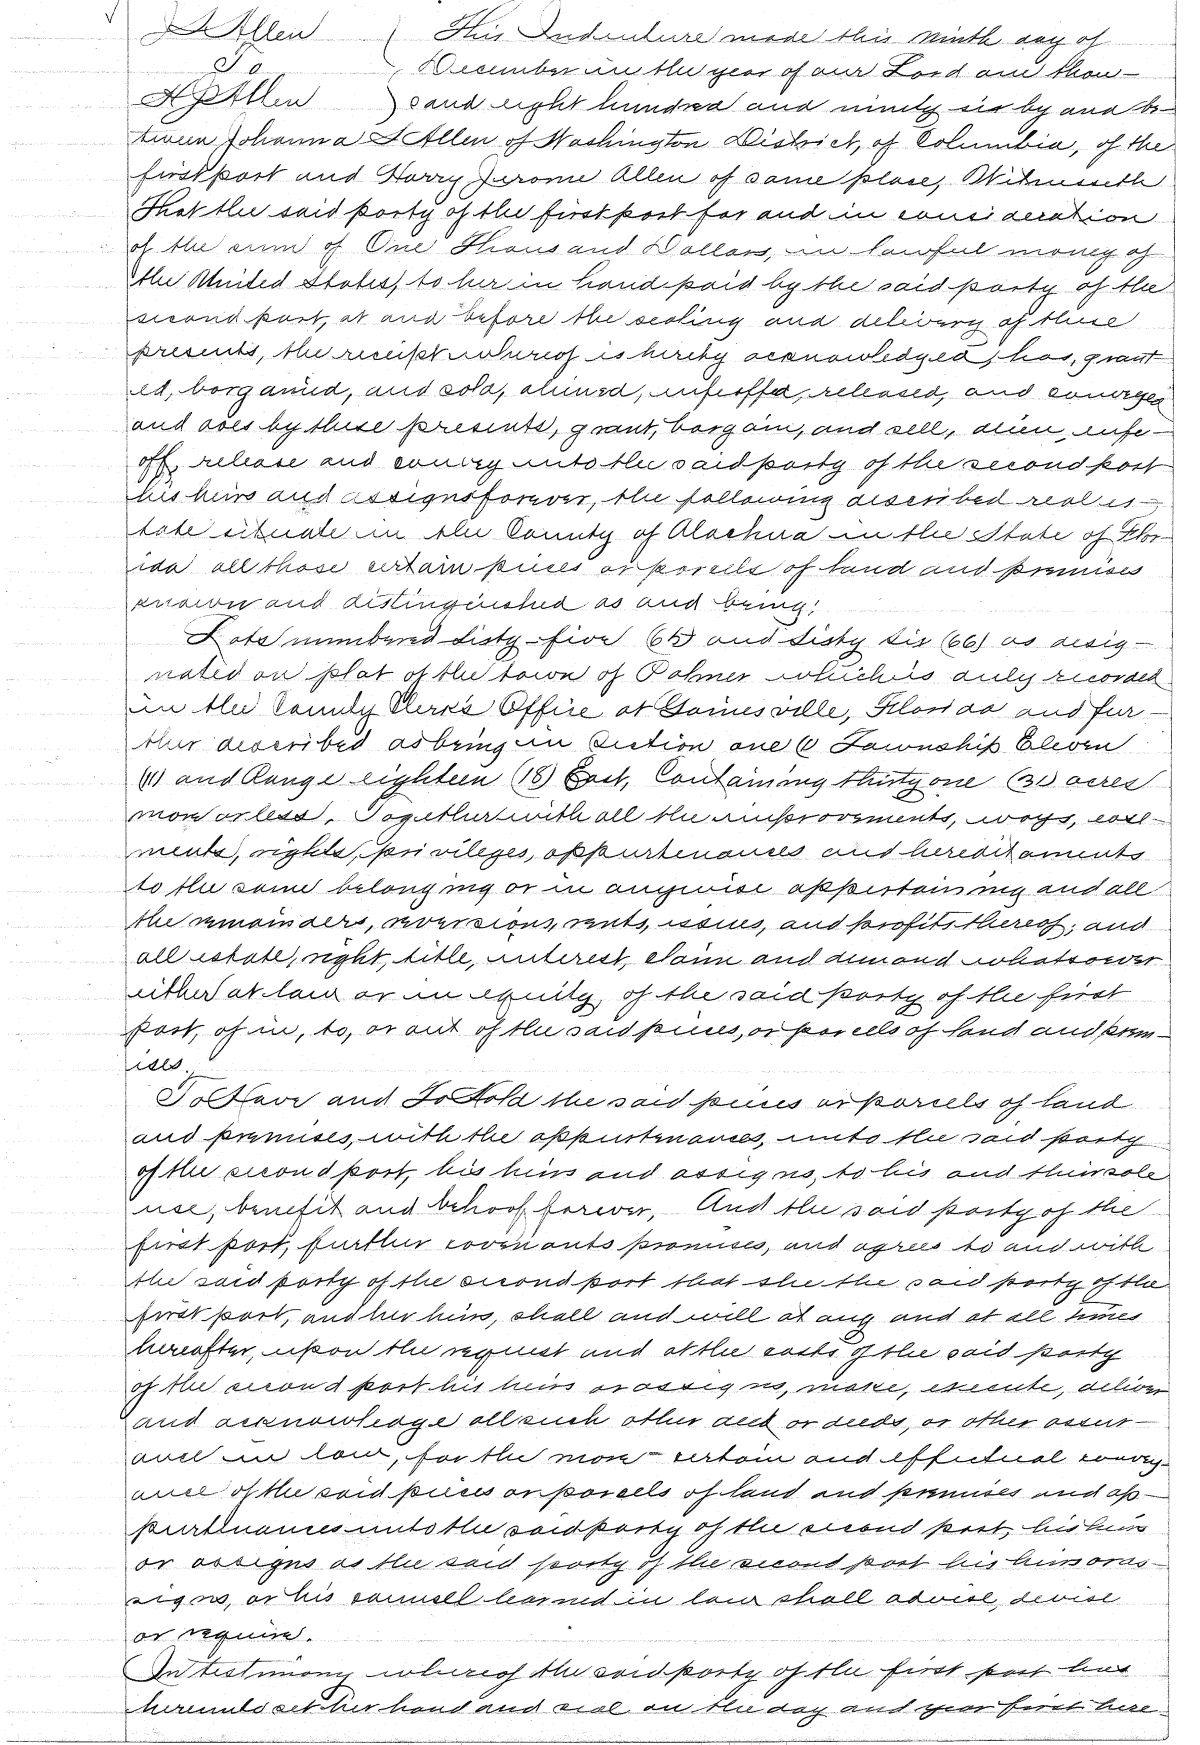 J L Allen
To
H J Allen
This Indenture made this ninth day of
December in the year of our Lord one thou-
sand eight hundred and ninety six by and be-
tween Johanna L Allen of Washington District, of Columbia, of the
first part and Harry Jerome Allen of same place, Witnesseth
That the said party of the first part for and in consideration
of the sum of One Thousand Dollars, in lawful money of
the United States, to her in hand paid by the said party of the
second part, at and before the sealing and delivery of these
presents, the receipt whereof is hereby acknowledged, has, grant
ed, bargained, and sold, aliened, enfeoffed, released, and conveyed
and does by these presents, grant, bargain, and sell, alien, enfe-
off, release and convey unto the said party of the second part
his heirs and assigns forever, the following described real es-
tate situate in the County of Alachua in the State of Flor-
ida all those certain pieces or parcels of land and premises
known and distinguished as and being:
Lots numbered sixty-five (65) and sixty six (66) as desig-
nated on plat of the town of Palmer which is duly recorded
in the County Clerk's Office at Gainesville, Florida and fur-
ther described as being in Section one (1) Township Eleven
(11) and Range eighteen (18) East, Containing thirty one (31) acres
more or less. Together with all the improvements, ways, ease-
ments, rights, privileges, appurtenances and hereditaments
to the same belonging or in anywise appertaining and all
the remainders, reversions, rents, issues, and profits thereof; and
all estate, right, title, interest, claim and demand whatsoever
either at law or in equity, of the said party of the first
part, of in, to, or out of the said pieces, or parcels of land and prem-
ises.
To Have and To Hold the said pieces or parcels of land
and premises, with the appurtenances, unto the said party
of the second part, his heirs and assigns, to his and their sole
use, benefit and behoof forever, And the said party of the
first part, further covenants promises, and agrees to and with
the said party of the second part that she the said party of the
first part, and her heirs, shall and will at any and at all times
hereafter, upon the request and at the costs of the said party
of the second part his heirs or assigns, make, execute, deliver
and acknowledge all such other deed or deeds, or other assur-
ance in law, for the more certain and effectual convey-
ance of the said pieces or parcels of land and premises and ap-
purtenances unto the said party of the second part, his heirs
or assigns as the said party of the second part his heirs or as-
signs, or his counsell learned in law shall advise, devise
or require.
In testimony whereof the said party of the first part has
hereunto set her hand and seal on the day and year first here-